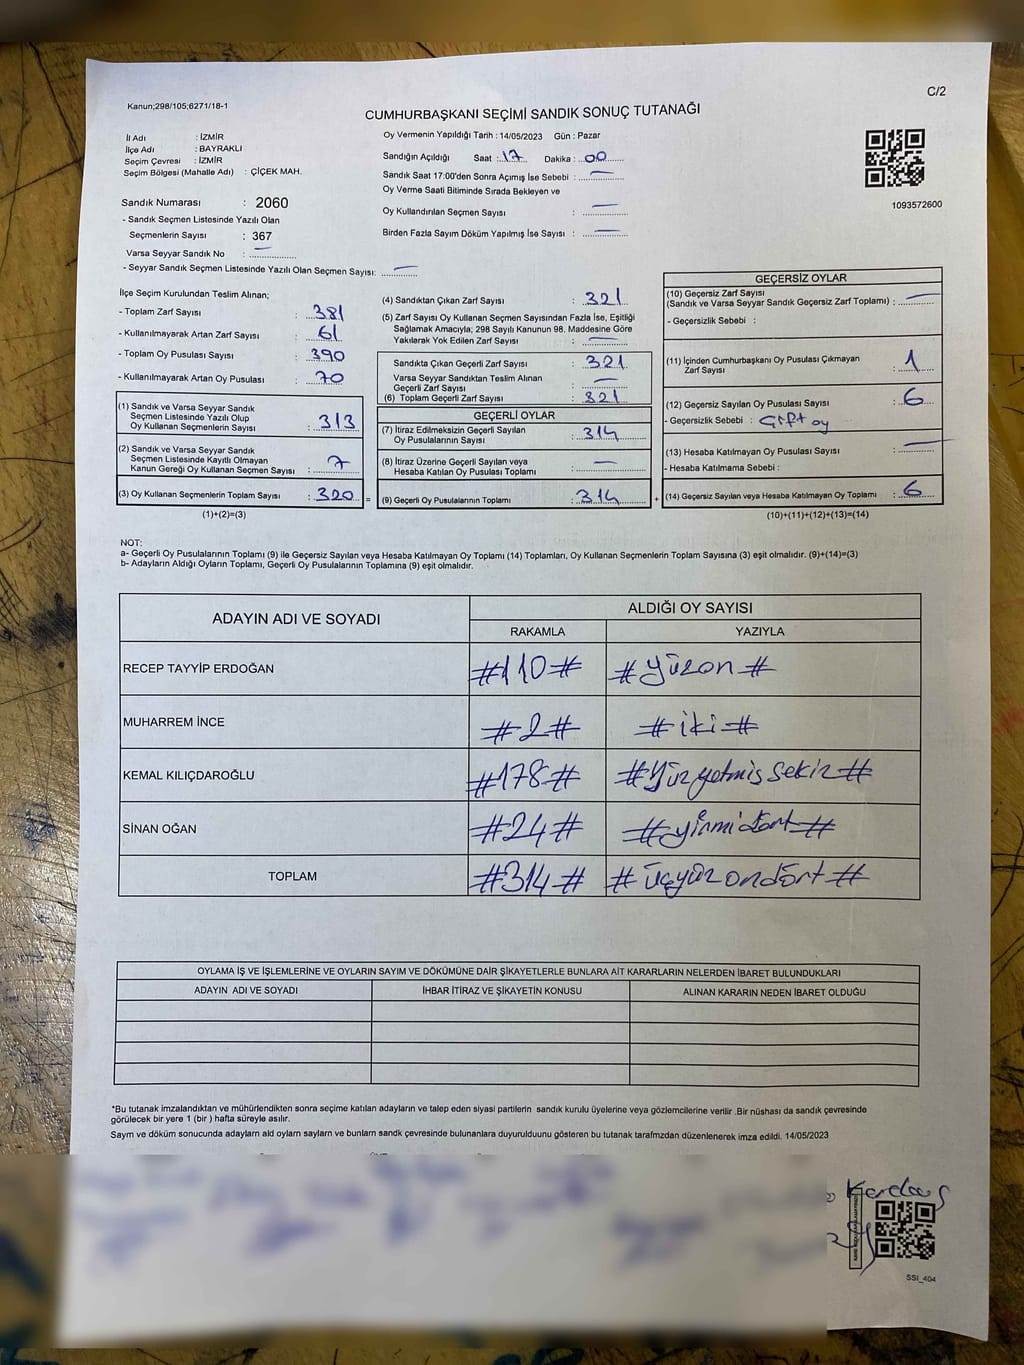 C/2
Kanun;298/105;6271/18-1
CUMHURBAŞKANI SEÇİMİ SANDIK SONUÇ TUTANAĞI
İl Adı : İZMİR
İlçe Adı : BAYRAKLI
Seçim Çevresi : İZMİR
Seçim Bölgesi (Mahalle Adı) : ÇİÇEK MAH.
Oy Vermenin Yapıldığı Tarih : 14/05/2023 Gün : Pazar
Sandığın Açıldığı Saat : 17 Dakika : 00
Sandık Saat 17:00'den Sonra Açımış İse Sebebi : —
Oy Verme Saati Bitiminde Sırada Bekleyen ve
Oy Kullandırılan Seçmen Sayısı : —
Birden Fazla Sayım Döküm Yapılmış İse Sayısı : —
1093572600
Sandık Numarası : 2060
- Sandık Seçmen Listesinde Yazılı Olan
Seçmenlerin Sayısı : 367
Varsa Seyyar Sandık No : —
- Seyyar Sandık Seçmen Listesinde Yazılı Olan Seçmen Sayısı: —
İlçe Seçim Kurulundan Teslim Alınan;
- Toplam Zarf Sayısı : 381
- Kullanılmayarak Artan Zarf Sayısı : 61
- Toplam Oy Pusulası Sayısı : 390
- Kullanılmayarak Artan Oy Pusulası : 70
(1) Sandık ve Varsa Seyyar Sandık
Seçmen Listesinde Yazılı Olup
Oy Kullanan Seçmenlerin Sayısı : 313
(2) Sandık ve Varsa Seyyar Sandık
Seçmen Listesinde Kayıtlı Olmayan
Kanun Gereği Oy Kullanan Seçmen Sayısı : 7
(3) Oy Kullanan Seçmenlerin Toplam Sayısı : 320 =
(1)+(2)=(3)
(4) Sandıktan Çıkan Zarf Sayısı : 321
(5) Zarf Sayısı Oy Kullanan Seçmen Sayısından Fazla İse, Eşitliği
Sağlamak Amacıyla; 298 Sayılı Kanunun 98. Maddesine Göre
Yakılarak Yok Edilen Zarf Sayısı : —
Sandıkta Çıkan Geçerli Zarf Sayısı : 321
Varsa Seyyar Sandıktan Teslim Alınan
Geçerli Zarf Sayısı : —
(6) Toplam Geçerli Zarf Sayısı : 321
GEÇERLİ OYLAR
(7) İtiraz Edilmeksizin Geçerli Sayılan
Oy Pusulalarının Sayısı : 314
(8) İtiraz Üzerine Geçerli Sayılan veya
Hesaba Katılan Oy Pusulası Toplamı : —
(9) Geçerli Oy Pusulalarının Toplamı : 314 +
GEÇERSİZ OYLAR
(10) Geçersiz Zarf Sayısı
(Sandık ve Varsa Seyyar Sandık Geçersiz Zarf Toplamı) : —
- Geçersizlik Sebebi :
(11) İçinden Cumhurbaşkanı Oy Pusulası Çıkmayan
Zarf Sayısı : 1
(12) Geçersiz Sayılan Oy Pusulası Sayısı : 6
- Geçersizlik Sebebi : Çift oy
(13) Hesaba Katılmayan Oy Pusulası Sayısı : —
- Hesaba Katılmama Sebebi :
(14) Geçersiz Sayılan veya Hesaba Katılmayan Oy Toplamı : 6
(10)+(11)+(12)+(13)=(14)
NOT:
a- Geçerli Oy Pusulalarının Toplamı (9) ile Geçersiz Sayılan veya Hesaba Katılmayan Oy Toplamı (14) Toplamları, Oy Kullanan Seçmenlerin Toplam Sayısına (3) eşit olmalıdır. (9)+(14)=(3)
b- Adayların Aldığı Oyların Toplamı, Geçerli Oy Pusulalarının Toplamına (9) eşit olmalıdır.
ADAYIN ADI VE SOYADI ALDIĞI OY SAYISI
RAKAMLA YAZIYLA
RECEP TAYYİP ERDOĞAN #110# #yüzon#
MUHARREM İNCE #2# #iki#
KEMAL KILIÇDAROĞLU #178# #Yüzyetmiş sekiz#
SİNAN OĞAN #24# #yirmidört#
TOPLAM #314# #üçyüzondört#
OYLAMA İŞ VE İŞLEMLERİNE VE OYLARIN SAYIM VE DÖKÜMÜNE DAİR ŞİKAYETLERLE BUNLARA AİT KARARLARIN NELERDEN İBARET BULUNDUKLARI
ADAYIN ADI VE SOYADI İHBAR İTİRAZ VE ŞİKAYETİN KONUSU ALINAN KARARIN NEDEN İBARET OLDUĞU
*Bu tutanak imzalandıktan ve mühürlendikten sonra seçime katılan adayların ve talep eden siyasi partilerin sandık kurulu üyelerine veya gözlemcilerine verilir .Bir nüshası da sandık çevresinde
görülecek bir yere 1 (bir ) hafta süreyle asılır.
Sayım ve döküm sonucunda adayların ald oyların sayların ve bunların sandk çevresinde bulunanlara duyurulduunu gösteren bu tutanak tarafmzdan düzenlenerek imza edildi. 14/05/2023
SSI_404